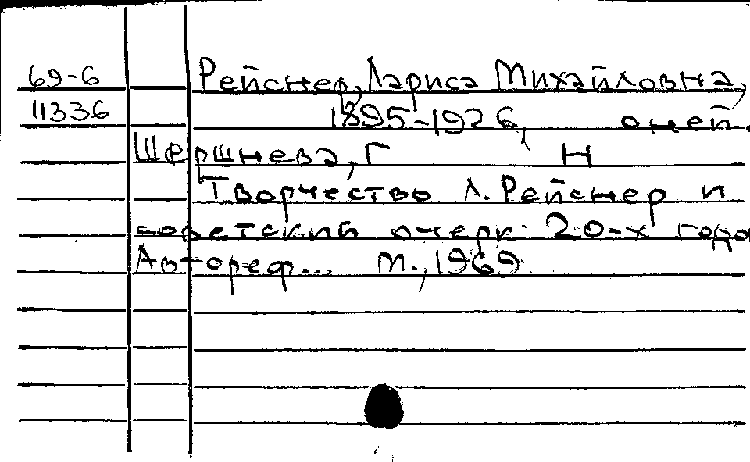 69-6 Рейснер, Лариса Михайловна,
11336 1895-1926, о ней
Шершнева, Г Н
Творчество Л. Рейснер и
советский очерк 20-х годо
Автореф... М., 1969